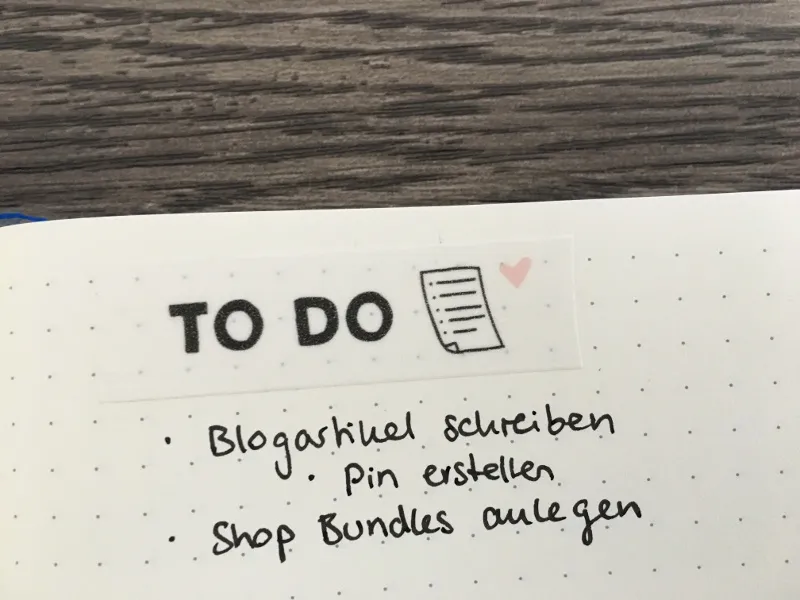 TO DO
· Blogartikel schreiben
· Pin erstellen
· Shop Bundles anlegen